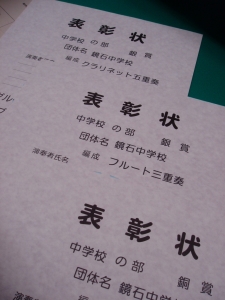 表彰状
中学校 の部 銀賞
団体名 鏡石中学校
編成 クラリネット五重奏
表彰状
中学校 の部 銀賞
団体名 鏡石中学校
演奏者氏名 編成 フルート三重奏
表彰状
中学校 の部 銅賞
団体名 鏡石中学校